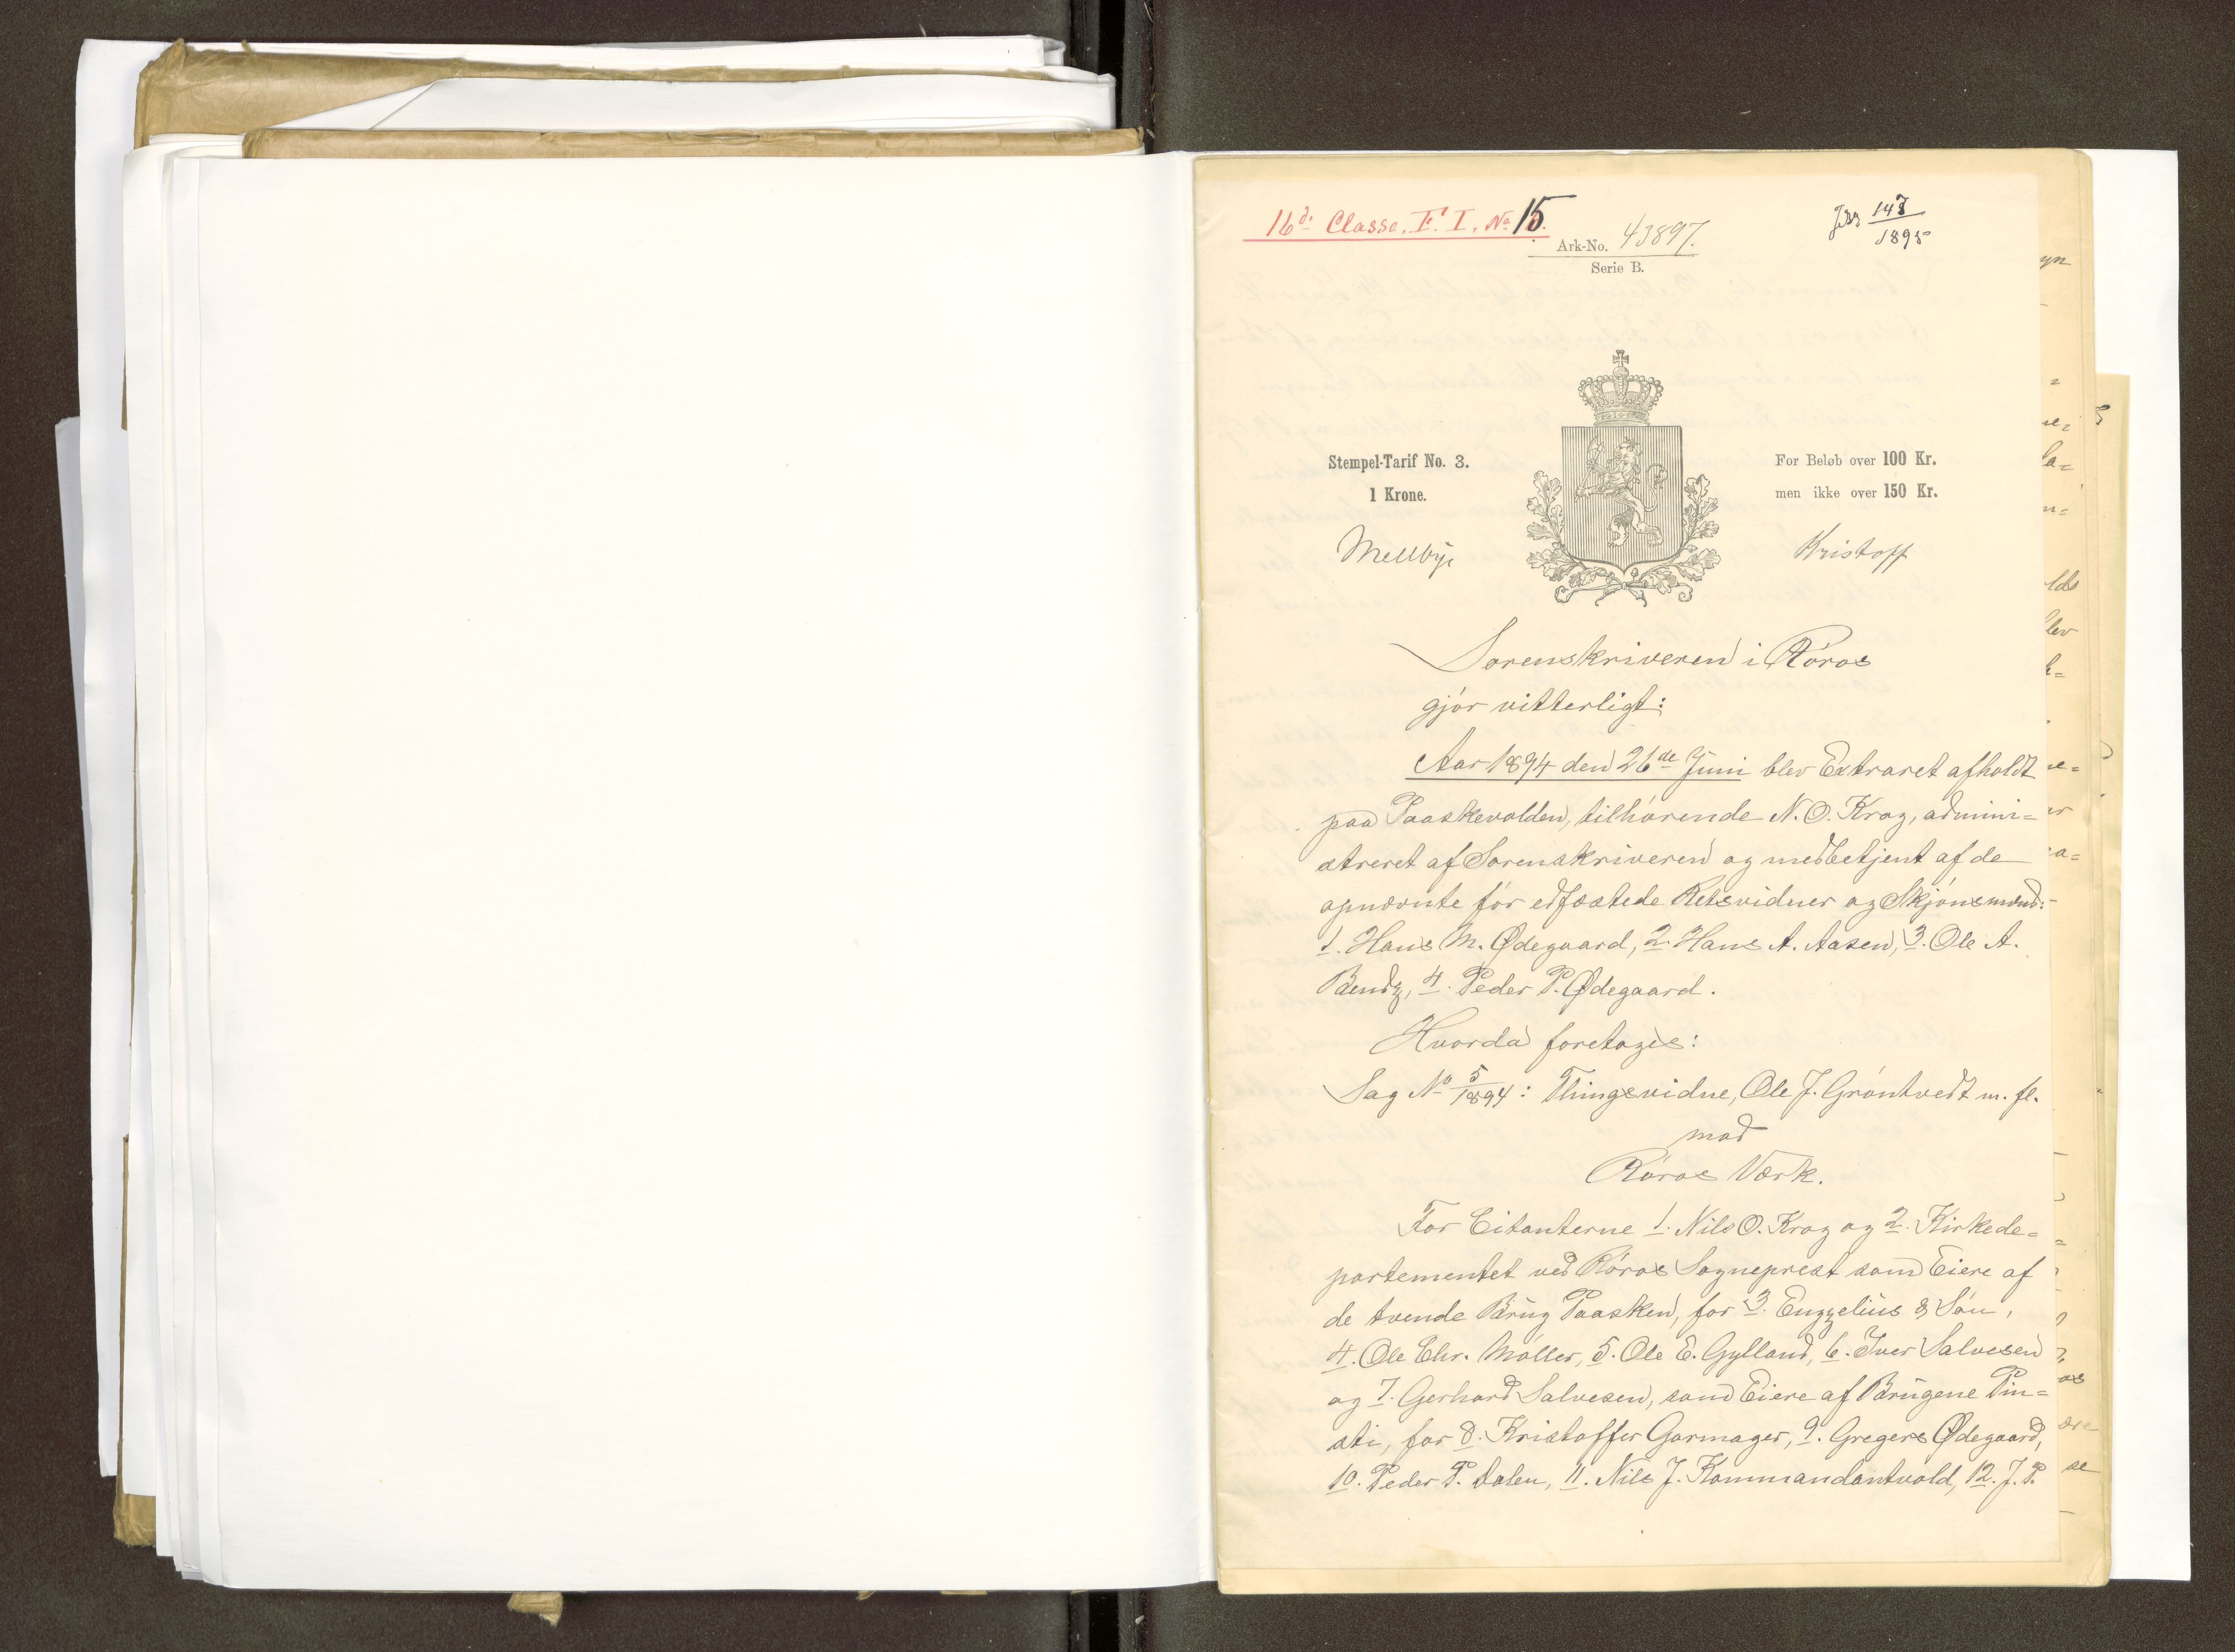 16de Classe. F. I. No 15.
Ark-No. 43897.
Serie B.
Jrs 147/1895
Stempel-Tarif No. 3.
1 Krone.
For Beløb over 100 Kr.
men ikke over 150 Kr.
Mellbye
Kristoff
Sorenskriveren i Røros
gjør vitterligt:
Aar 1894 den 26de Juni blev Extraret afholdt
paa Paaskevolden, tilhørende N. O. Krog, admini=
streret af Sorenskriveren og medbetjent af de
opnævnte før edfæstede Retsvidner og Skjønsmænd:
1. Hans M. Ødegaard, 2. Hans A. Aasen, 3. Ole A.
Bendz, 4. Peder P. Ødegaard.
Hvorda foretoges:
Sag No 5/1894: Thingsvidne, Ole J. Grøntvedt m. fl.
mod
Røros Værk.
For Citanterne 1. Nils O. Krog og 2. Kirkede=
partementet ved Røros Sogneprest som Eiere af
de tvende Brug Paasken, for 3. Engzelius & Søn,
4. Ole Chr. Møller, 5. Ole E. Gylland, 6. Iver Salvesen
og 7. Gerhard Salvesen, som Eiere af Brugene Pin=
sti, for 8. Kristoffer Garmager, 9. Gregers Ødegaard,
10. Peder P. Dalen, 11. Nils J. Kommandantvold, 12. J. P.